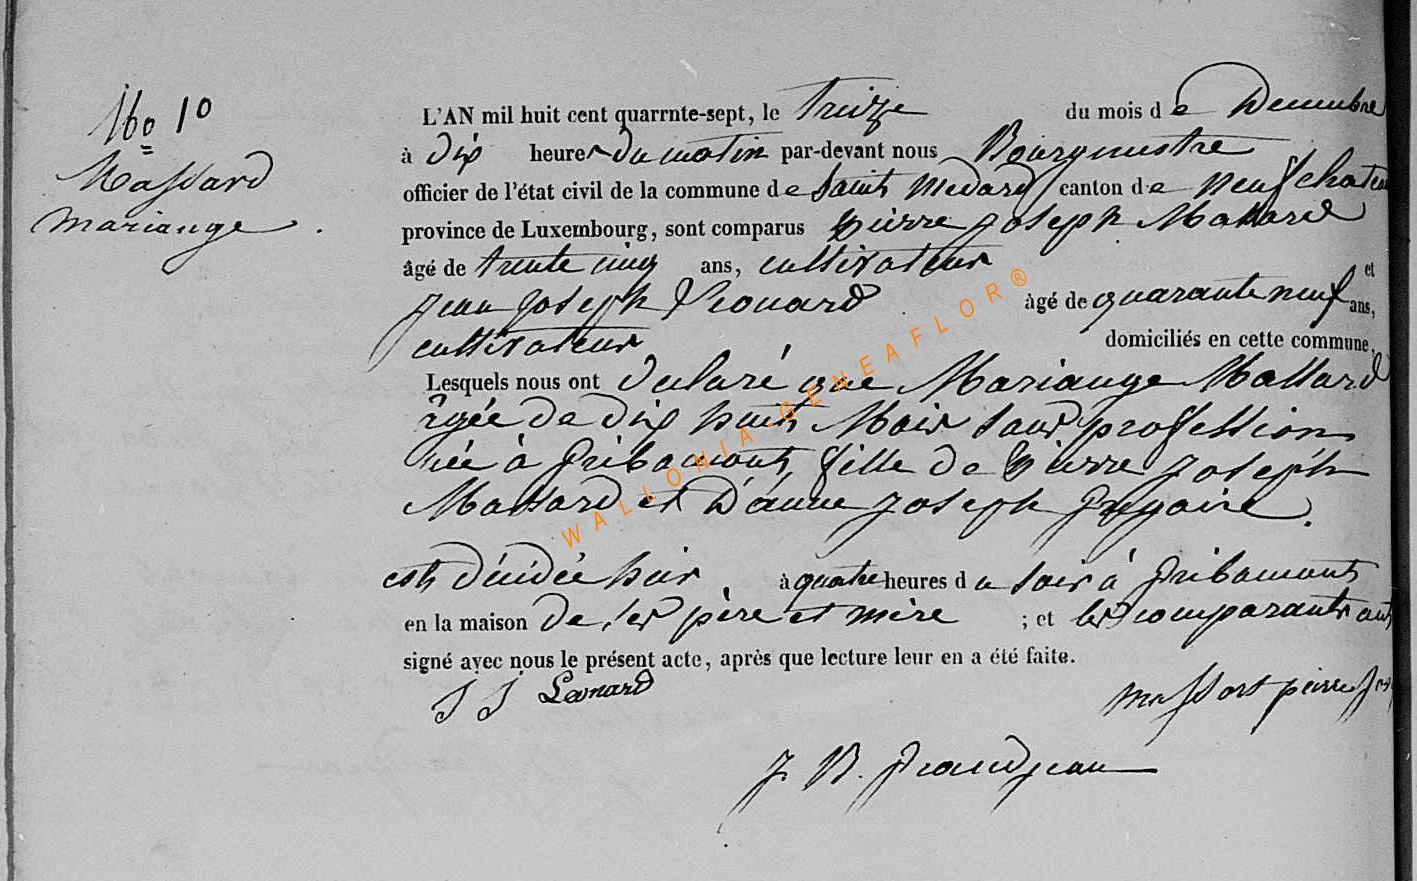 No 10
Massard
Mariange.
L'AN mil huit cent quarrnte-sept, le treize du mois de Decembre
à dix heures du matin par-devant nous Bourgmestre
officier de l'état civil de la commune de Saint Medard canton de neufchateau
province de Luxembourg, sont comparus pierre joseph Massard
âgé de trente cinq ans, cultivateur et
jean joseph Leonard âgé de quarante neuf ans,
cultivateur domiciliés en cette commune,
Lesquels nous ont déclaré que Mariange Massard
agée de dix huit Mois sans profession
née à gribamont, fille de pierre joseph
Massard et D'anne joseph gregoire.
est décédée hier à quatre heures du soir à gribamont
en la maison de ses père et mère ; et les comparants ont
signé avec nous le présent acte, après que lecture leur en a été faite.
J J Leonard
massart pierre
J B. grandjean
WALLONIA GENEAFLOR®